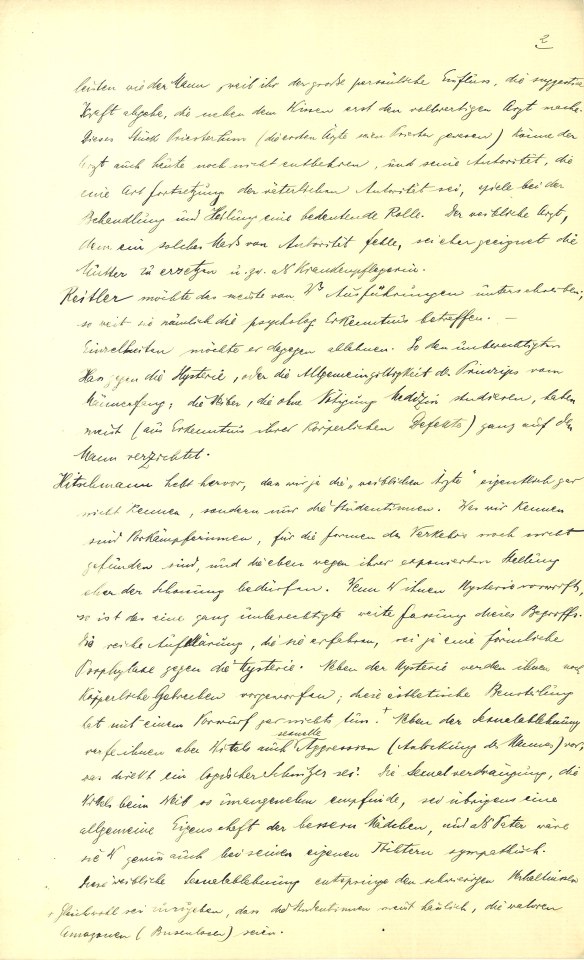 2
leisten wie der Mann, weil ihr der große persönliche Einfluss, die suggestive
Kraft abgehe, die neben dem Wissen erst den vollwertigen Arzt mache.
Dieses Stück Priestertum (die ersten Ärzte seien Priester gewesen) könne der
Arzt auch heute noch nicht entbehren, und seine Autorität, die
eine Art Fortsetzung der väterlichen Autorität sei, spiele bei der
Behandlung und Heilung eine bedeutende Rolle. Der weibliche Arzt,
dem ein solches Maß von Autorität fehle, sei eher geeignet die
Mutter zu ersetzen u. zw. als Krankenpflegerin.
Reitler möchte das meiste von W's Ausführungen unterschreiben,
so weit sie nämlich die psycholog Erkenntnis betreffen. —
Einzelheiten möchte er dagegen ablehnen. So den unberechtigten
Hass gegen die Hysterie, oder die Allgemeingiltigkeit des Prinzips vom
Männerfang; die Weiber, die ohne Nötigung Medizin studieren, haben
meist (aus Erkenntnis ihrer körperlichen Defekte) ganz auf den
Mann verzichtet.
Hitschmann hebt hervor, dass wir ja die „weiblichen Ärzte" eigentlich gar
nicht kennen, sondern nur die Studentinnen. Was wir kennen
sind Vorkämpferinnen, für die Formen des Verkehrs noch nicht
gefunden sind, und die eben wegen ihrer exponierten Stellung
eher der Schonung bedürfen. Wenn W ihnen Hysterie vorwirft,
so ist das eine ganz unberechtigte weite Fassung dieses Begriffs.
Die reiche Aufklärung, die sie erfahren, sei ja eine förmliche
Prophylaxe gegen die Hysterie. Neben der Hysterie werden ihnen noch
körperliche Gebrechen vorgeworfen; diese ästhetische Beurteilung
hat mit einem Vorwurf gar nichts tun.+ Neben der Sexualablehnung
sexuelle
verzeichnen aber Wittels auch Aggression (Anlockung des Mannes) vor,
was direkt ein logischer Schnitzer sei. Die Sexualverdrängung, die
Wittels beim Weib so unangenehm empfinde, sei übrigens eine
allgemeine Eigenschaft der bessern Mädchen, und als Vater wäre
sie W gewiss auch bei seinen eigenen Töchtern sympathisch.
Diese weibliche Sexualablehnung entspringe den schwierigen Verhältnissen
+ Gleichwohl sei zuzugeben, dass die Studentinnen meist hässlich, die wahren
Amazonen (Busenlosen) seien.